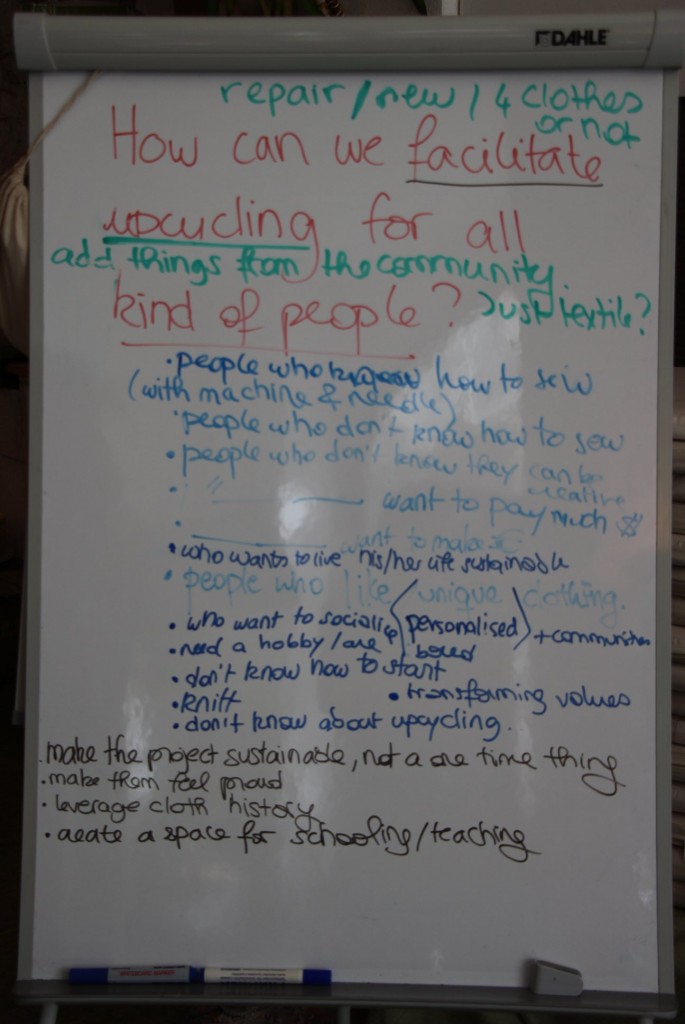 DAHLE
repair / new / 4 clothes
or not
How can we facilitate
upcycling for all
add things from the community.
kind of people? Just textile?
• people who know how to sew
(with machine & needle)
• people who don't know how to sew
• people who don't know they can be
creative
• " ——— want to pay much $
• ——— want to make €
• who wants to live his/her life sustainable
• people who like unique clothing.
• who want to socialise (personalised) + communities
• need a hobby / are bored
• don't know how to start
• knitt • transforming values
• don't know about upcycling.
• make the project sustainable, not a one time thing
• make them feel proud
• leverage cloth history
• create a space for schooling/teaching